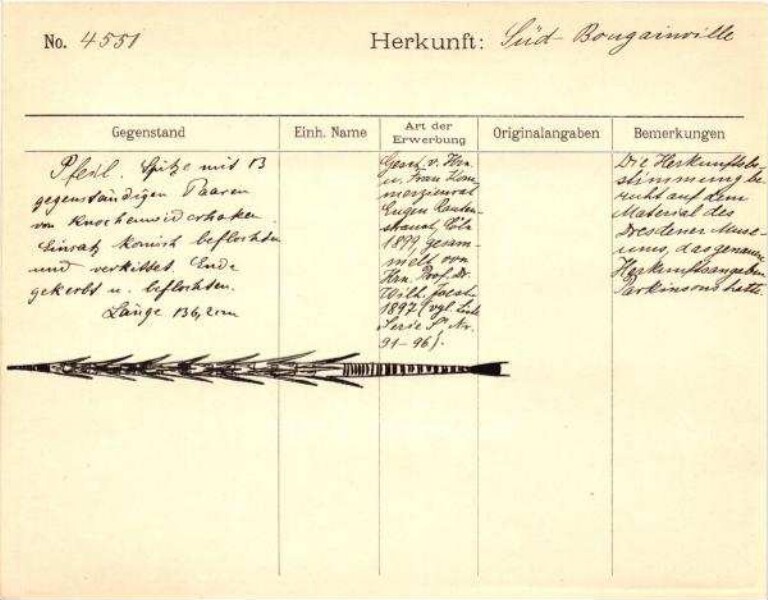 No. 4551
Herkunft: Süd-Bougainville
Gegenstand
Einh. Name
Art der Erwerbung
Originalangaben
Bemerkungen
Pfeil. Spitze mit 13
gegenständigen Paaren
von Knochenwiderhaken.
Einsatz konisch beflochten
und verkittet. Ende
gekerbt u. beflochten.
Länge 136,2cm
Gesch. v. Hrn.
u. Frau Kom-
merzienrat
Eugen Rauten-
strauch, Cöln
1899, gesam-
melt von
Hrn. Prof. Dr.
Wilh. Joest
1897 (vgl. Liste
Serie S Nr.
91-96).
Die Herkunftsbe-
stimmung be-
ruht auf dem
Material des
Dresdener Muse-
ums, das genauere
Herkunftsangaben
Parkinsons hatte.